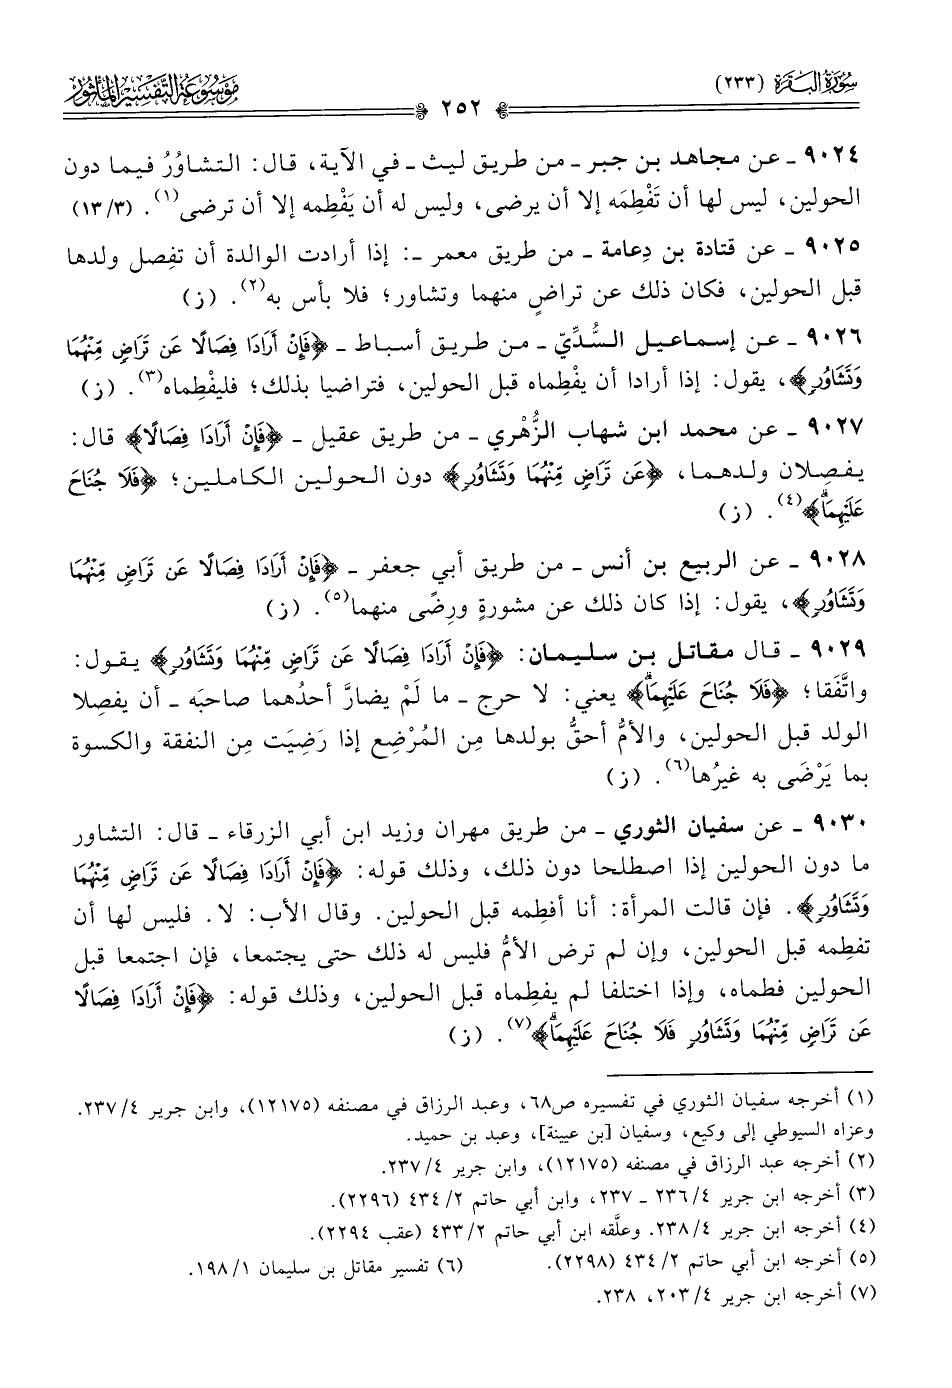 سُورَةُ البَقَرَةِ (٢٣٣)
٢٥٢
مَوْسُوعَةُ التَّفْسِيرِ المَأْثُور
٩٠٢٤ ـ عن مجاهد بن جبر ـ من طريق ليث ـ في الآية، قال: التشاوُرُ فيما دون
الحولين، ليس لها أن تَفْطِمَه إلا أن يرضى، وليس له أن يَفْطِمه إلا أن ترضى(١). (١٣/٣)
٩٠٢٥ ـ عن قتادة بن دِعامة ـ من طريق معمر ـ: إذا أرادت الوالدة أن تفصِل ولدها
قبل الحولين، فكان ذلك عن تراضٍ منهما وتشاور؛ فلا بأس به(٢). (ز)
٩٠٢٦ ـ عن إسماعيل السُّدِّيّ ـ من طريق أسباط ـ ﴿فَإِنْ أَرَادَا فِصَالًا عَن تَرَاضٍ مِّنْهُمَا
وَتَشَاوُرٍ﴾، يقول: إذا أرادا أن يفْطِماه قبل الحولين، فتراضيا بذلك؛ فليفْطِماه(٣). (ز)
٩٠٢٧ ـ عن محمد ابن شهاب الزُّهْري ـ من طريق عقيل ـ ﴿فَإِنْ أَرَادَا فِصَالًا﴾ قال:
يفصلان ولدهما، ﴿عَن تَرَاضٍ مِّنْهُمَا وَتَشَاوُرٍ﴾ دون الحولين الكاملين؛ ﴿فَلَا جُنَاحَ
عَلَيْهِمَاۗ﴾(٤). (ز)
٩٠٢٨ ـ عن الربيع بن أنس ـ من طريق أبي جعفر ـ ﴿فَإِنْ أَرَادَا فِصَالًا عَن تَرَاضٍ مِّنْهُمَا
وَتَشَاوُرٍ﴾، يقول: إذا كان ذلك عن مشورةٍ ورِضًى منهما(٥). (ز)
٩٠٢٩ ـ قال مقاتل بن سليمان: ﴿فَإِنْ أَرَادَا فِصَالًا عَن تَرَاضٍ مِّنْهُمَا وَتَشَاوُرٍ﴾ يقول:
واتَّفَقا؛ ﴿فَلَا جُنَاحَ عَلَيْهِمَاۗ﴾ يعني: لا حرج ـ ما لَمْ يضارَّ أحدُهما صاحبَه ـ أن يفصلا
الولد قبل الحولين، والأمُّ أحقُّ بولدها مِن المُرْضِع إذا رَضِيَت مِن النفقة والكسوة
بما يَرْضَى به غيرُها(٦). (ز)
٩٠٣٠ ـ عن سفيان الثوري ـ من طريق مهران وزيد ابن أبي الزرقاء ـ قال: التشاور
ما دون الحولين إذا اصطلحا دون ذلك، وذلك قوله: ﴿فَإِنْ أَرَادَا فِصَالًا عَن تَرَاضٍ مِّنْهُمَا
وَتَشَاوُرٍ﴾. فإن قالت المرأة: أنا أفطِمه قبل الحولين. وقال الأب: لا. فليس لها أن
تفطِمه قبل الحولين، وإن لم ترض الأمُّ فليس له ذلك حتى يجتمعا، فإن اجتمعا قبل
الحولين فطماه، وإذا اختلفا لم يفطِماه قبل الحولين، وذلك قوله: ﴿فَإِنْ أَرَادَا فِصَالًا
عَن تَرَاضٍ مِّنْهُمَا وَتَشَاوُرٍ فَلَا جُنَاحَ عَلَيْهِمَاۗ﴾(٧). (ز)
(١) أخرجه سفيان الثوري في تفسيره ص٦٨، وعبد الرزاق في مصنفه (١٢١٧٥)، وابن جرير ٢٣٧/٤.
وعزاه السيوطي إلى وكيع، وسفيان [بن عيينة]، وعبد بن حميد.
(٢) أخرجه عبد الرزاق في مصنفه (١٢١٧٥)، وابن جرير ٢٣٧/٤.
(٣) أخرجه ابن جرير ٢٣٦/٤ ـ ٢٣٧، وابن أبي حاتم ٤٣٤/٢ (٢٢٩٦).
(٤) أخرجه ابن جرير ٢٣٨/٤. وعلَّقه ابن أبي حاتم ٤٣٣/٢ (عقب ٢٢٩٤).
(٥) أخرجه ابن أبي حاتم ٤٣٤/٢ (٢٢٩٨). (٦) تفسير مقاتل بن سليمان ١٩٨/١.
(٧) أخرجه ابن جرير ٢٠٣/٤، ٢٣٨.